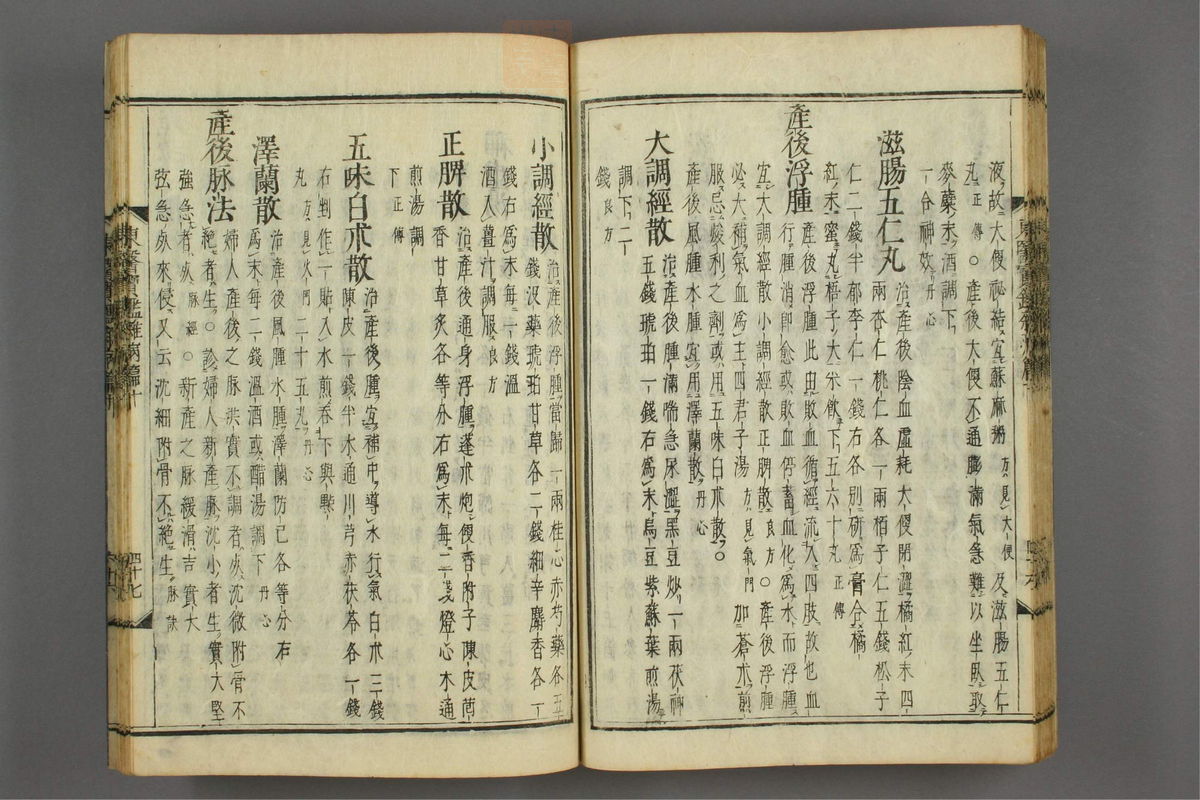 液故大便祕結宜蘇麻粥方見大便及滋腸五仁
丸正傳○產後大便不通膨滿氣急難以坐臥取
麥蘗末酒調下
一合神效丹心
滋腸五仁丸治產後陰血虛耗大便閉澁橘紅末四
兩杏仁桃仁各一兩栢子仁五錢松子
仁二錢半郁李仁一錢右各別硏爲膏合橘
紅末蜜丸梧子大米飮下五六十丸正傳
產後浮腫產後浮腫此由敗血循經流入四肢故也血
行腫消卽愈或敗血停蓄血化爲水而浮腫
宜大調經散小調經散正脾散良方○產後浮腫
必大補氣血爲主四君子湯方見氣門加蒼朮煎
服忌峻利之劑或用五味白朮散○
產後風腫水腫宜用澤蘭散丹心
大調經散治產後腫滿喘急尿澁黑豆炒一兩茯神
五錢琥珀一錢右爲末烏豆紫蘇葉煎湯
調下二
錢良方
小調經散治產後浮腫當歸一兩桂心赤芍藥各五
錢沢藥琥珀甘草各二錢細辛麝香各一
錢右爲末每一錢溫
酒入薑汁調服良方
正脾散治產後通身浮腫蓬朮炮便香附子陳皮茴
香甘草炙各等分右爲末每二錢燈心木通
煎湯調
下正傳
五味白朮散治產後腫宜補中導水行氣白朮三錢
陳皮一錢半木通川芎赤茯苓各一錢
右剉作一貼入水煎吞下與點
丸方見火門二十五丸丹心
澤蘭散治產後風腫水腫澤蘭防已各等分右
爲末每二錢溫酒或醋湯調下丹心
產後脉法婦人產後之脉洪實不調者死沈微附骨不
絶者生○診婦人新產脉沈小者生實大堅
強急者死脉經○新產之脉緩滑吉實大
弦急死來侵又云沈細附骨不絶生脉訣
東醫寶鑑雜病篇十
四十七